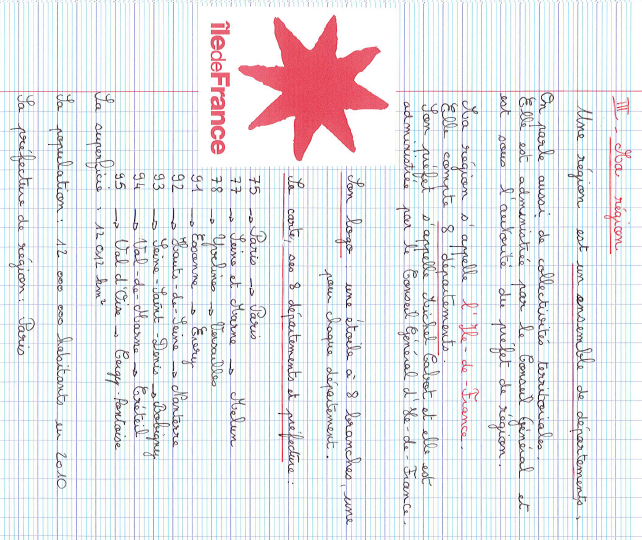 III - Ma région
Une région est un ensemble de départements.
On parle aussi de collectivités territoriales.
Elle est administrée par le Conseil Général et
est sous l'autorité du préfet de région.
Ma région s'appelle l'Ile-de-France.
Elle compte 8 départements.
Son préfet s'appelle Michel Cabot et elle est
administrée par le Conseil Général d'Ile-de-France.
îledeFrance
Son logo une étoile à 8 branches, une
pour chaque département.
La carte, ses 8 départements et préfecture :
75 → Paris → Paris
77 → Seine et Marne → Melun
78 → Yvelines → Versailles
91 → Essonne → Every
92 → Hauts-de-Seine → Nanterre
93 → Seine-Saint-Denis → Bobigny
94 → Val-de-Marne → Créteil
95 → Val d'Oise → Cergy-Pontoise
La superficie : 12 012 km²
La population : 12 000 000 habitants en 2010
La préfecture de région : Paris